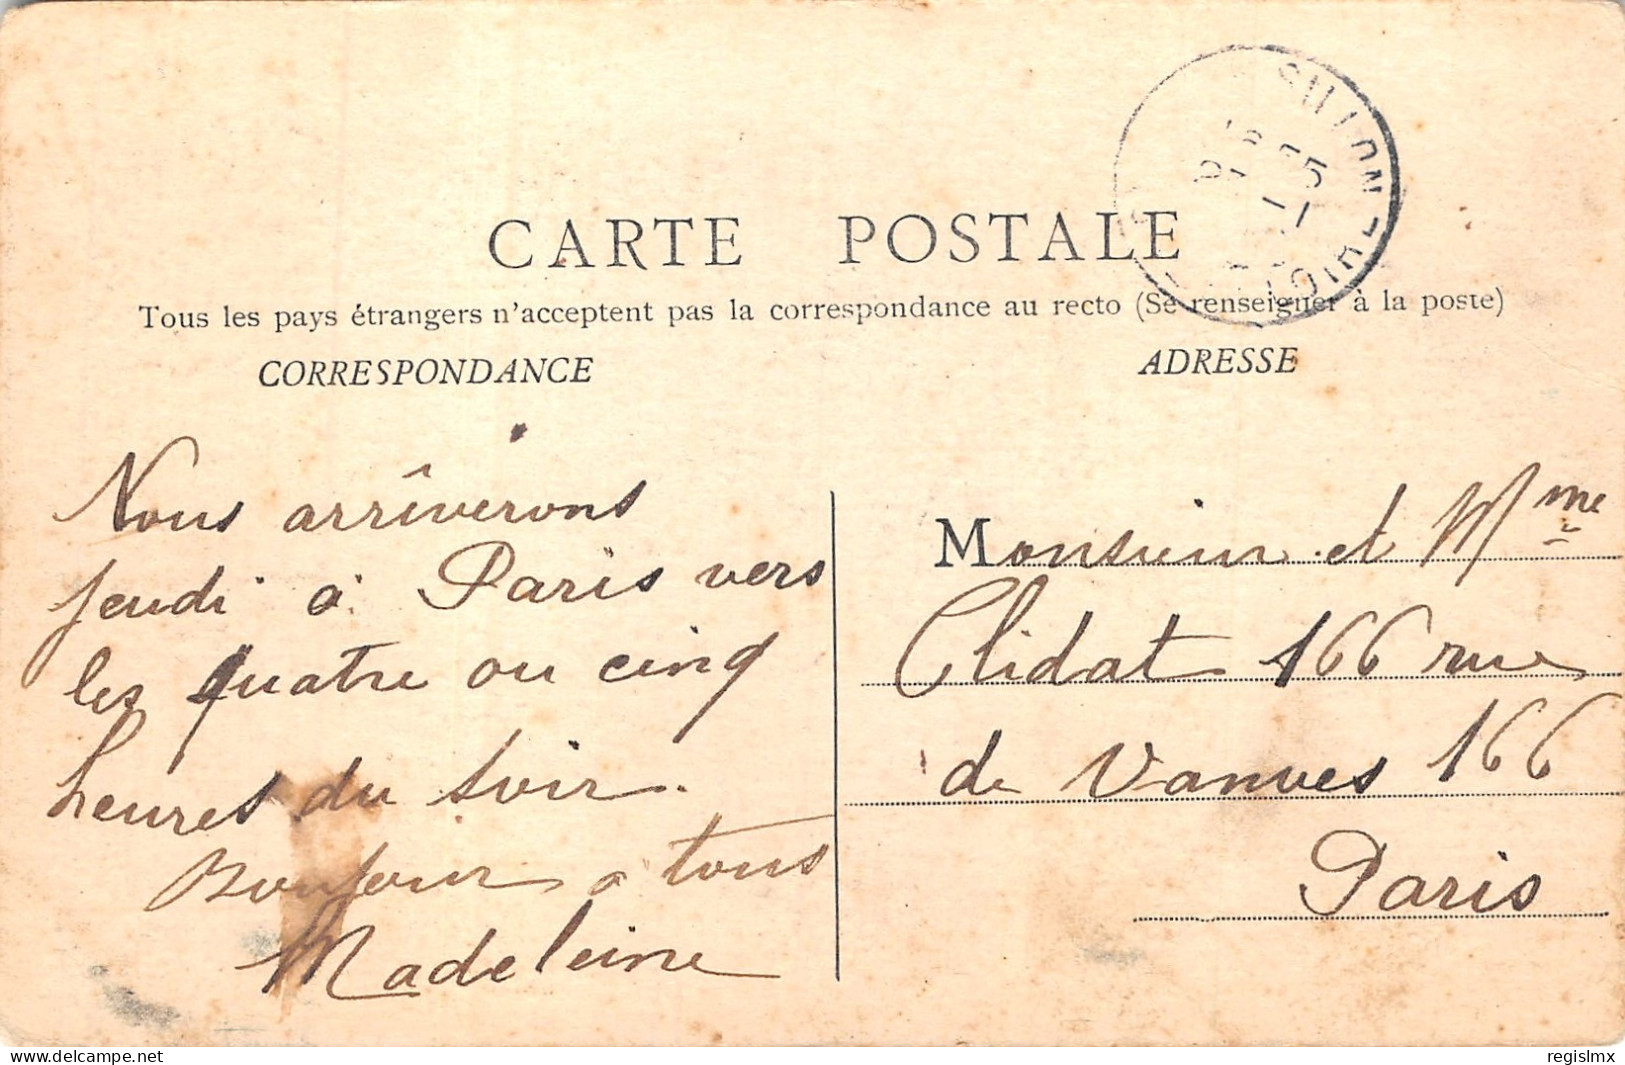 CARTE POSTALE
Tous les pays étrangers n'acceptent pas la correspondance au recto (Se renseigner à la poste)
CORRESPONDANCE
ADRESSE
Nous arrîverons
jeudi à Paris vers
les quatre ou cinq
heures du soir.
Bonjour a tous
Madeleine
Monsieur et Mme
Clidat 166 rue
de Vanves 166
Paris
regislmx